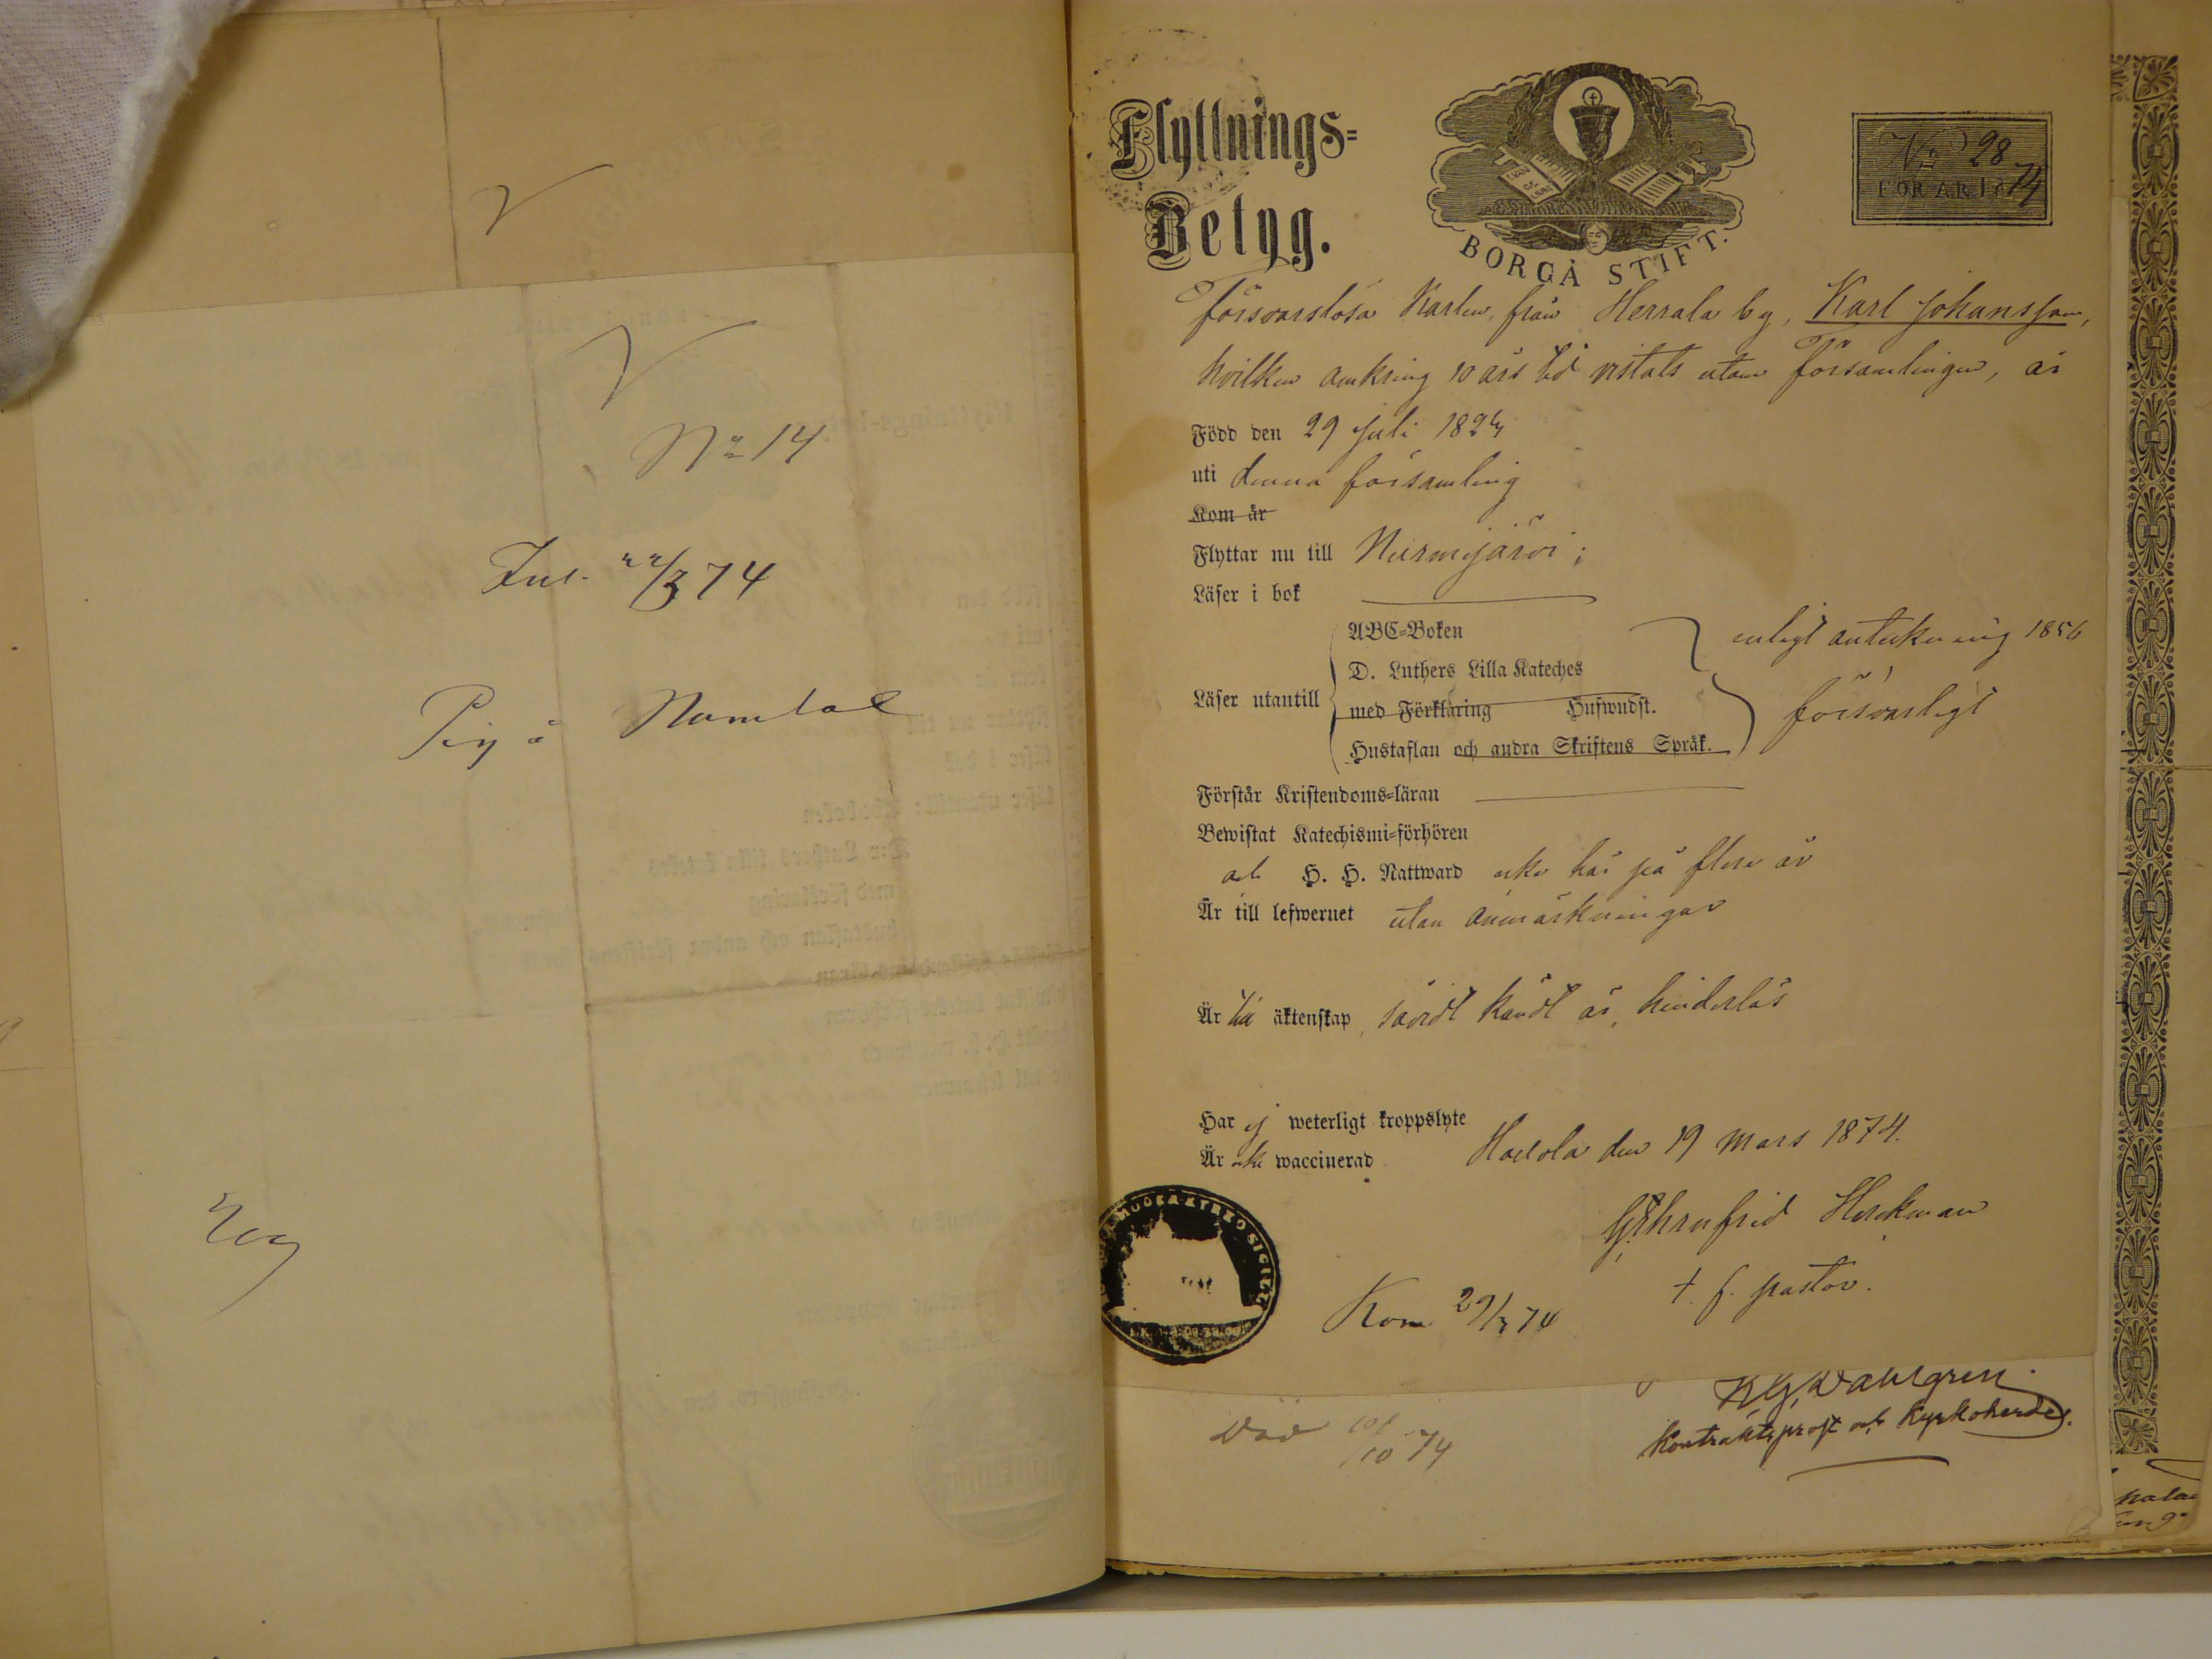 V
V
No 14
Inl. 22/3 74
Pig å Numlax
Flyttnings-
Betyg.
BORGÅ STIFT.
No 28
FÖR ÅR 1874
Försvarslösa Karlen, från Herrala by, Karl Johansson,
hvilken omkring 10 års tid vistats utom församlingen, är
Född den 29 Juli 1824
uti denna församling
Kom år
Flyttar nu till Nurmijärvi;
Läser i bok
ABC-Boken
D. Luthers Lilla Kateches
Läser utantill
med Förklaring Hufwudst.
Hustaflan och andra Skriftens Språk.
enligt anteckning 1856
försvarligt
Förstår Kristendoms-läran
Bewistat Katechismi-förhören
och H. H. Nattward icke här på flere år
Är till lefwernet utan anmärkningar
Är till äktenskap, såvidt kändt är, hinderlös
Har ej weterligt kroppslyte
Är icke waccinerad
Hollola den 19 Mars 1874.
Ehrnfrid Heickman
t. f. pastor.
KYRKO SIGILL
Kom. 29/3 74
K G Wahlgren.
Kontraktsprost och Kyrkoherde.
Död
/10 74